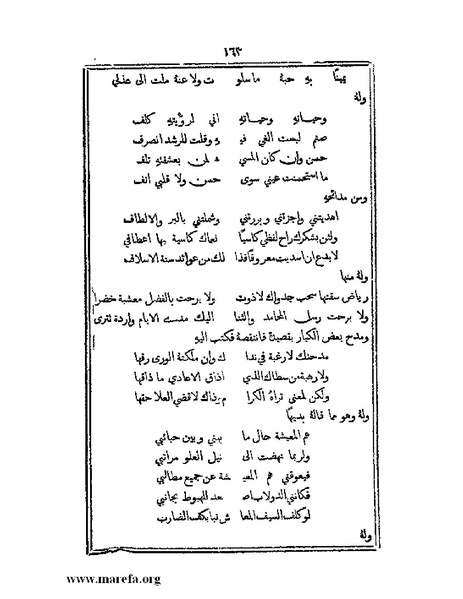 ١٦٣
يمينًا بهِ حبهُ ما سلو ت ولا عنهُ ملت الى عذلي
ولهُ
وحياتهِ وحياتهِ اني لرؤيتهِ كلف
صنم لبست الغي فيـ ـهِ وقلت للرشد انصرف
حسن وان كان المسي ء لمن بعشقهِ تلف
ما استحسنت عيني سوى حسن ولا قلبي الف
ومن مدائحهِ
اهديتني واجزتني وبررتني وشملتني بالبر والالطاف
ولئن بشكرك راح لفظي كاسيًا نعماك كاسية بها اعطافي
لا بدع ان اسديت معروفًا فذا لك من عوائد سنة الاسلاف
ولهُ منها
رياض سقتها سحب جدواك لا ذوت ولا برحت بالفضل معشبة خضرا
ولا برحت رسل المحامد والثنا اليك مدى الايام واردة تترى
ومدح بعض الكبار بقصيدة فانتقصهُ فكتب اليهِ
مدحتك لا رغبة في ندا ك وان ملكتهُ الورى رقها
ولا رهبة من سطاك الذي اذاق الاعادي ما ذاقها
ولكن لمعنى تراهُ الكرا م رذاك لاقضي العلا حقها
ولهُ وهو مما قالهُ بديهًا
هم المعيشة حال ما بيني وبين حبائبي
ولربما نهضت الى نيل العلو مراتبي
فيعوقني هم المعيـ ـشة عن جميع مطالبي
فكانني الدولاب اصـ ـعد للهبوط بجانبي
لو كلف السيف المعا ش نبا بكف الضارب
ولهُ
www.marefa.org